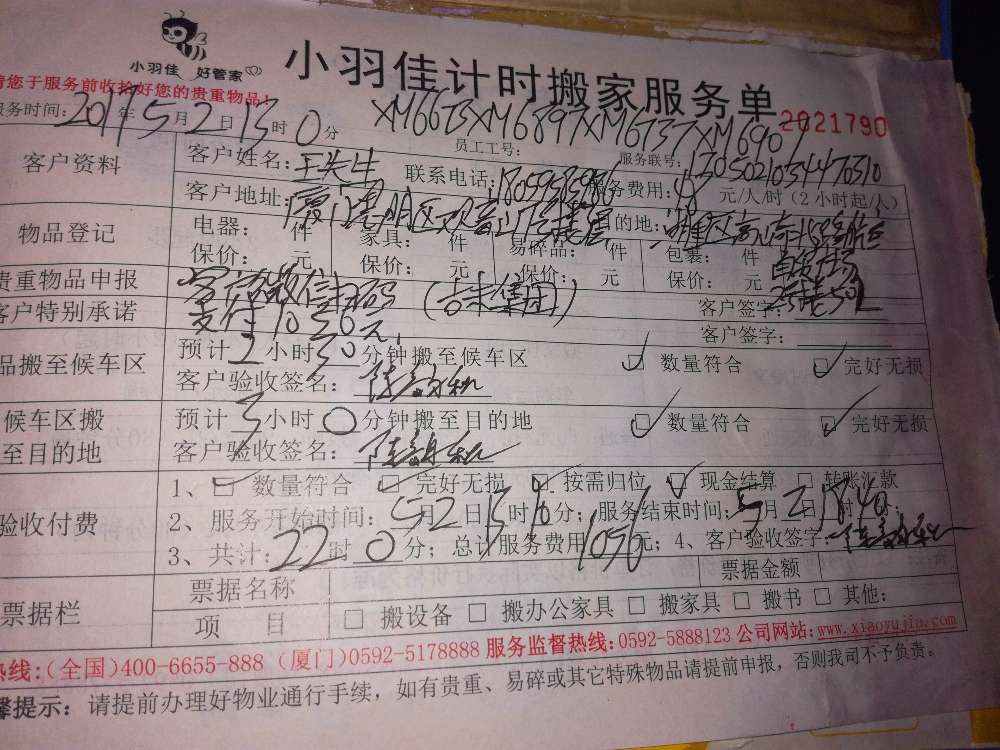 小羽佳 好管家
小羽佳计时搬家服务单
请您于服务前收拾好您的贵重物品!
2021790
服务时间: 2017年5月2日13时0分 员工工号: XM6673XM6897XM6737XM6907 服务联号: 1305021034470310
客户资料 客户姓名: 王先生 联系电话: 服务费用: 48 元/人/时(2小时起/人)
客户地址: 目的地:
物品登记 电器: 件 家具: 件 易碎品: 件 包装: 件
保价: 元 保价: 元 保价: 元 保价: 元
贵重物品申报 客户微信扫码 客户签字:
客户特别承诺 支付1056元, 客户签字:
品搬至候车区 预计2小时30分钟搬至候车区 数量符合 完好无损
客户验收签名:
候车区搬 预计3小时0分钟搬至目的地 数量符合 完好无损
至目的地 客户验收签名:
验收付费 1、 数量符合 完好无损 按需归位 现金结算 转账汇款
2、服务开始时间: 5月2日13时10分; 服务结束时间: 5月2日18时40分;
3、共计: 22时0分; 总计服务费用1056元; 4、客户验收签字:
票据栏 票据名称 票据金额
项 目 搬设备 搬办公家具 搬家具 搬书 其他:
热线:(全国)400-6655-888 (厦门)0592-5178888 服务监督热线:0592-5888123 公司网站:www.xiaoyujia.com
馨提示: 请提前办理好物业通行手续,如有贵重、易碎或其它特殊物品请提前申报,否则我司不予负责。